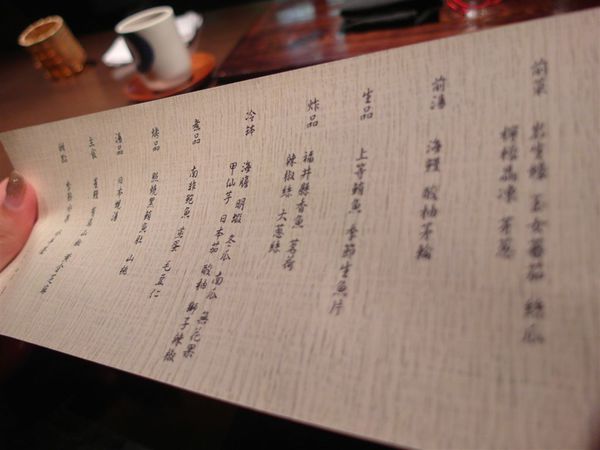 前菜 岩牡蠣 玉女蕃茄 絲瓜
檸檬晶凍 茅蔥
前湯 海鰻 酸柚茅輪
生品 上等鮪魚 季節生魚片
炸品 福井縣香魚 茗荷
辣椒絲 大蔥絲
冷缽 海膽 明蝦 冬瓜 南瓜 無花果
甲仙芋 日本茄 酸柚 獅子辣椒
煮品 南非鮑魚 煮蛋 毛豆仁
燒品 黑鮪魚肚 山桃
湯品 日本蜆湯
主食
甜點